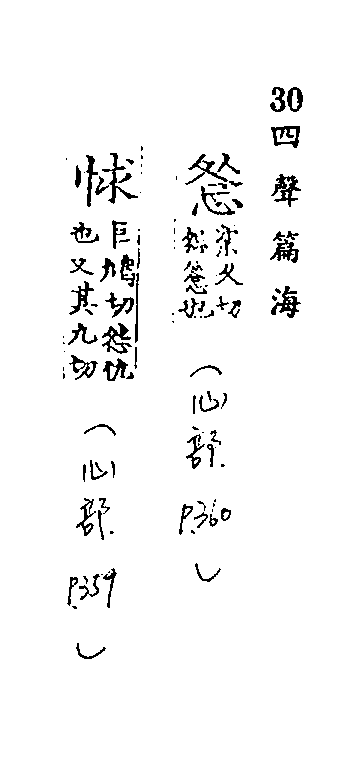 30四聲篇海
久切
也
（心部 P.360）
㤹
巨鳩切怨仇
也又其九切
（心部 P.359）